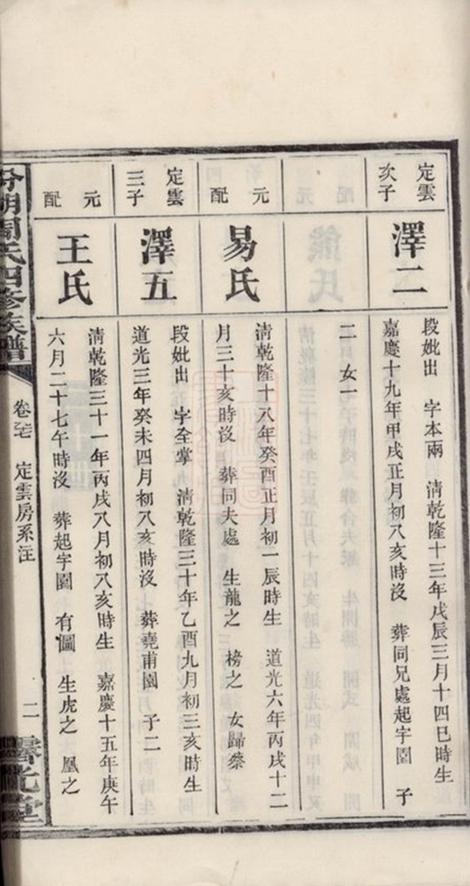 定雲次子
澤二
段妣出 字本兩 清乾隆十三年戊辰三月十四巳時生
嘉慶十九年甲戌正月初八亥時沒 葬同兄處起字園 子
二 女一
元配
易氏
清乾隆十八年癸酉正月初一辰時生 道光六年丙戌十二
月三十亥時沒 葬同夫處 生龍之 榜之 女歸蔡
定雲三子
澤五
段妣出 字全掌 清乾隆三十年乙酉九月初三亥時生
道光三年癸未四月初八亥時沒 葬堯甫園 子二
元配
王氏
清乾隆三十一年丙戌八月初八亥時生 嘉慶十五年庚午
六月二十七午時沒 葬起字園 有圖 生虎之 鳳之
周氏四修族譜
卷 定雲房系注
二
堂